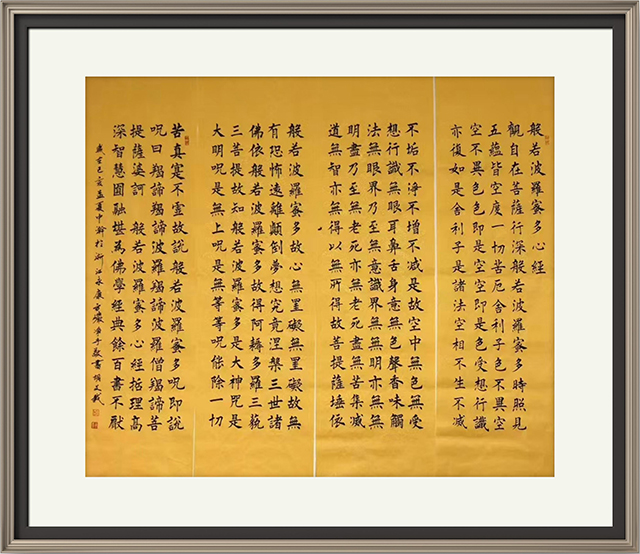 般若波羅蜜多心經
觀自在菩薩行深般若波羅蜜多時照見
五蘊皆空度一切苦厄舍利子色不異空
空不異色色即是空空即是色受想行識
亦復如是舍利子是諸法空相不生不滅
不垢不淨不增不減是故空中無色無受
想行識無眼耳鼻舌身意無色聲香味觸
法無眼界乃至無意識界無無明亦無無
明盡乃至無老死亦無老死盡無苦集滅
道無智亦無得以無所得故菩提薩埵依
般若波羅蜜多故心無罣礙無罣礙故無
有恐怖遠離顛倒夢想究竟涅槃三世諸
佛依般若波羅蜜多故得阿耨多羅三藐
三菩提故知般若波羅蜜多是大神呪是
大明呪是無上呪是無等等呪能除一切
苦真寔不虛故說般若波羅蜜多呪即說
呪曰羯諦羯諦波羅羯諦波羅僧羯諦菩
提薩婆訶 般若波羅蜜多心經括理高
深智慧圓融堪為佛學經典餘百書不厭
歲在己亥孟夏中澣於浙江永康敬書